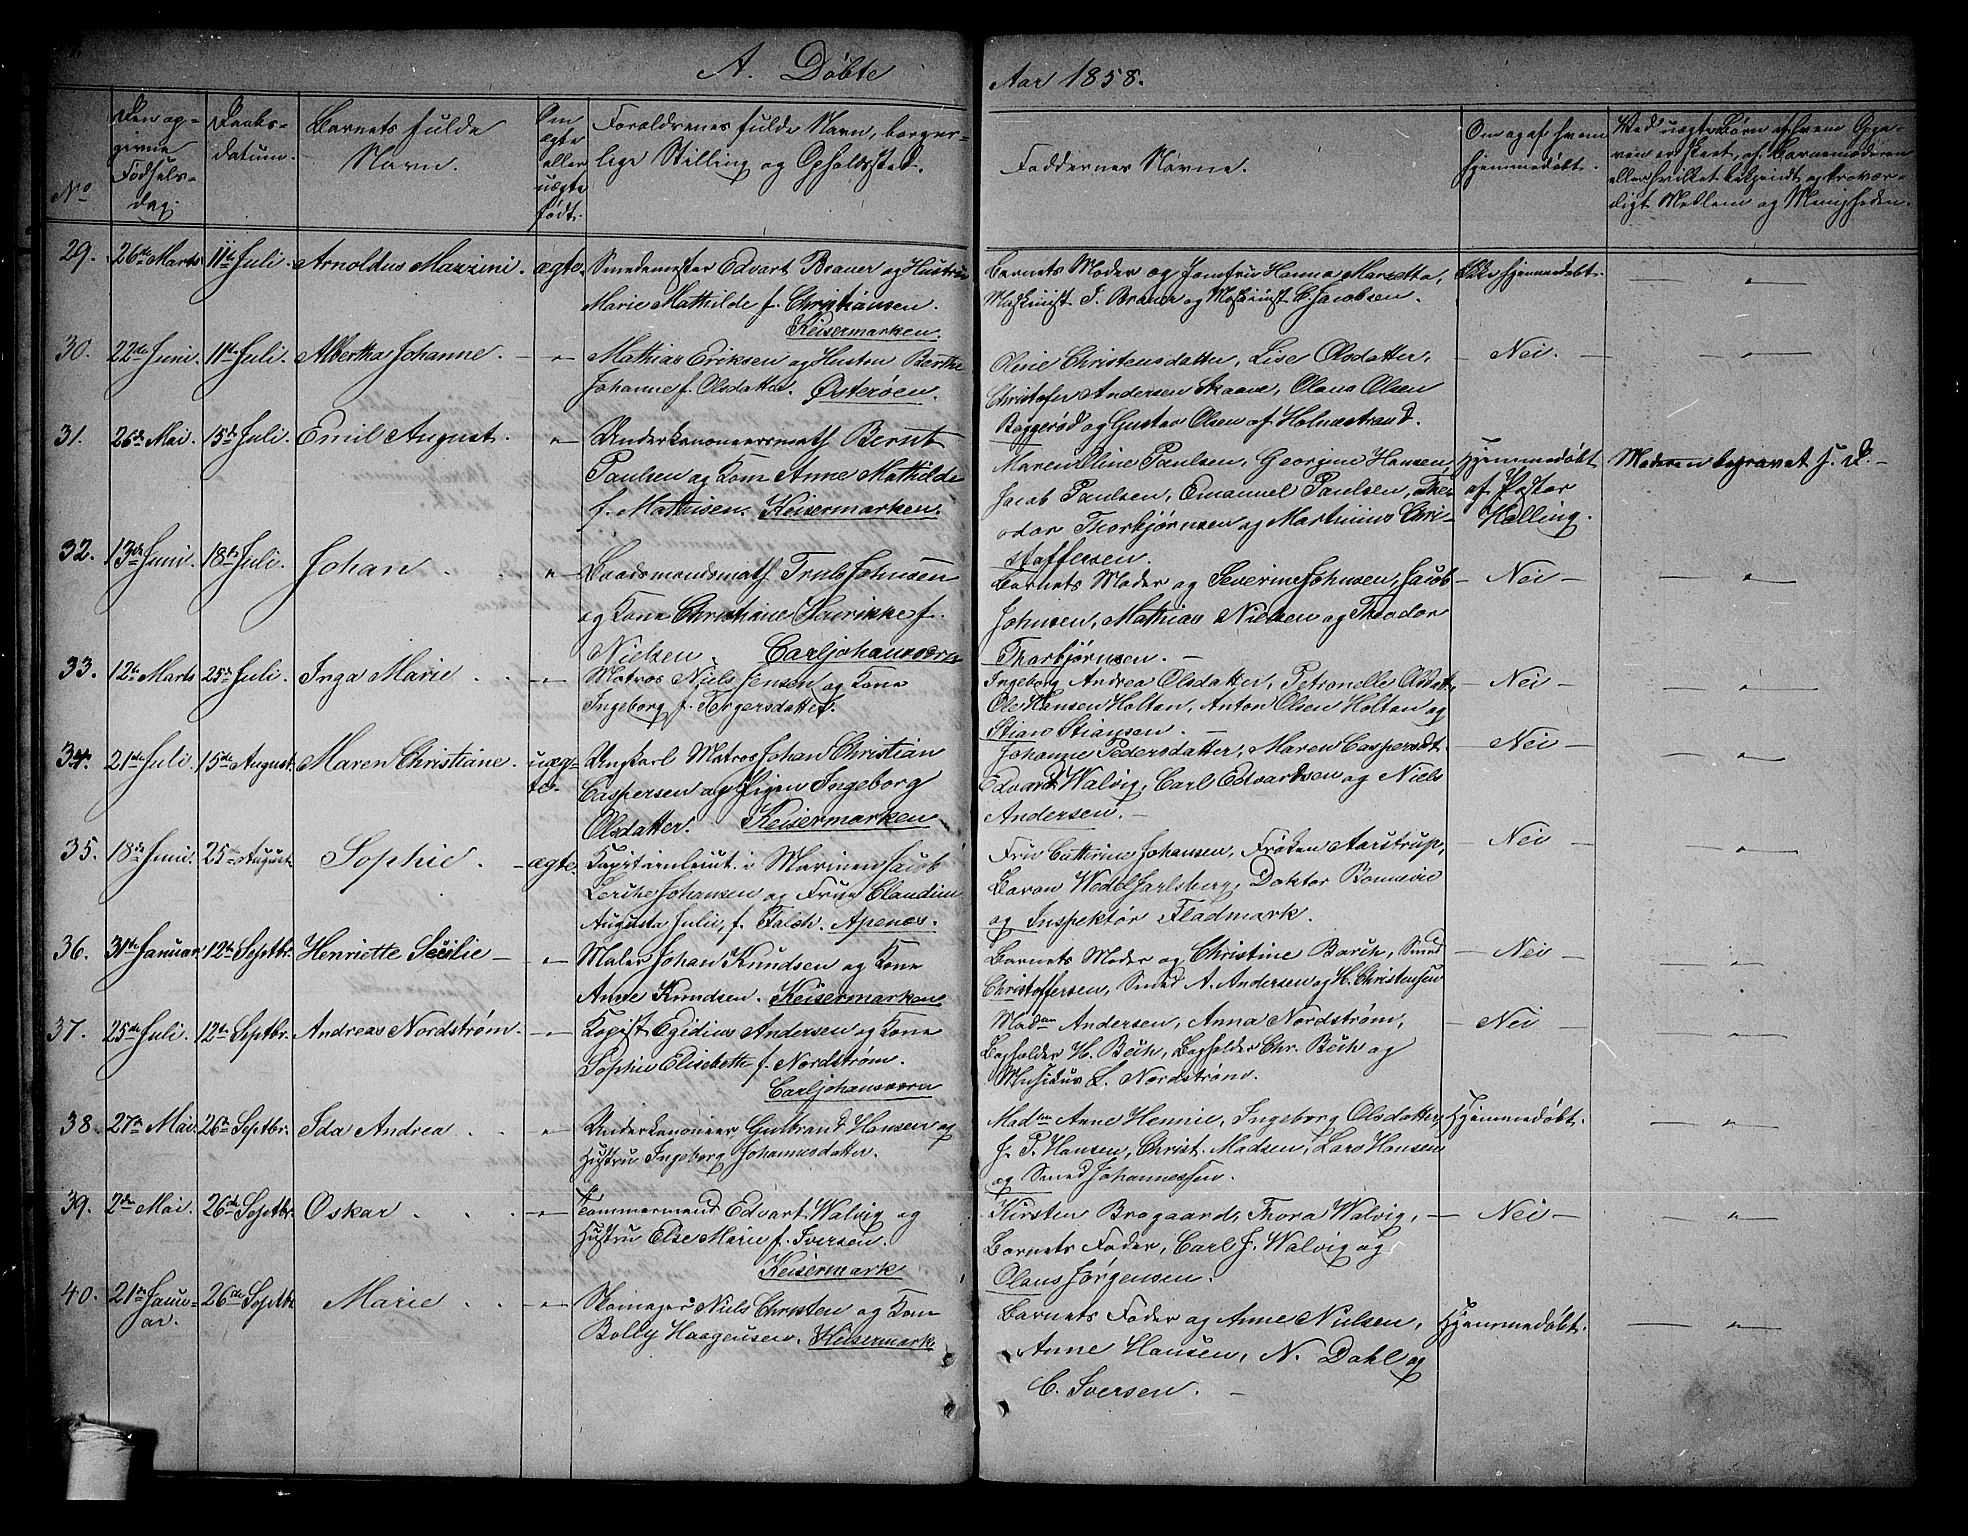 A. Döbte
Aar 1858.
No
Den op-
givne
Födsels-
dag.
Daabs-
datum.
Barnets fulde
Navn.
Om
ægte
eller
uægte
födt.
Forældrenes fulde Navn, borger-
lige Stilling og Opholdssted.
Faddernes Navne.
Om og af hvem
hjemmedöbt.
29. 26de Marts 11te Juli. Arnoldus Mazzini. ægte. Smedemester Edvart Brauer og Hustru
Marie Mathilde f. Christiansen.
Keisermarken.
Barnets Moder og Jomfru Hanna Marsetta,
Maskinist J. Brauer og Maskinist C. Jacobsen.
Ikke hjemmedöbt. — " —
30. 22de Juni. 11te Juli. Albertha Johanne. — " — Mathias Eriksen og Hustru Berthe
Johanne f. Olsdatter. Österöen.
Oline Christensdatter, Lise Olsdatter,
Christofer Andersen Skaane, Olaus Olsen
Baggeröd og Gustav Olsen af Holmestrand.
— Nei. — — " —
31. 26de Mai. 15de Juli. Emil August. " — Underkanoneersmath Bernt
Paulsen og Kone Anne Mathilde
f. Mathisen. Keisermarken.
Maren Oline Paulsen, Georgine Hansen,
Jacob Paulsen, Emanuel Paulsen, The-
odor Thorbjörnsen og Martinius Chri-
stoffersen.
Hjemmedöbt
af Pastor
Halling.
Moderen begravet s. D. —
32. 13de Juni. 18de Juli. Johan. " — Baadsmandsmath Truls Johnsen
og Kone Christiane Henrikke f.
Nielsen. Carljohansværn
Barnets Moder og Severine Johnsen, Jacob
Johnsen, Mathias Nielsen og Theodor
Thorbjörnsen. —
— Nei — — " —
33. 12te Marts 25de Juli. Inga Marie — " — Matros Niels Jensen og Kone
Ingeborg f. Torgersdatter.
Ingeborg Andrea Olsdatter, Petronelle Olsdatt.
Ole Hansen Holtan, Anton Olsen Holtan og
Stian Stiansen. —
Nei — — " —
34. 21de Juli. 15de August. Maren Christiane. uæg-
te. Ungkarl Matros Johan Christian
Caspersen og Pigen Ingeborg
Olsdatter. Keisermarken
Johanne Pedersdatter, Maren Caspersdt.
Edvard Walvig, Carl Edvardsen og Niels
Andersen. —
— Nei — — " —
35. 18de Juni. 25de August. Sophie. — ægte. Kapitainleiut. i Marinen Jacob
Lerche Johansen og Frue Claudine
Augusta Julie, f. Falch. Apenæs.
Fru Cathrine Johansen, Fröken Aarstrup,
Baron Wedel Jarlsberg, Doktor
og Inspektör Fladmark.
— Nei — — " —
36. 31te Januar 12te Septbr. Henriette Secilie — — " — Maler Johan Knudsen og Kone
Anne Knudsen. Keisermarken
Barnets Moder og Christine Barch, Smed
Christoffersen, Smed A. Andersen og H. Christensen
— Nei — — " —
37. 25de Juli. 12te Septbr. Andreas Nordström. — " — Kopist Egidius Andersen og Kone
Sophie Elisabeth f. Nordström.
Carljohansværn
Madam Andersen, Anna Nordström,
Bogholder H. Bech, Bogholder Chr. Bech og
Musikus L. Nordström.
— Nei — — " —
38. 27de Mai. 26de Septbr. Ida Andrea " — Underkanoneer Gulbrand Hansen og
Hustru Ingeborg Johannesdatter.
Madam Anne Hennie, Ingeborg Olsdatter,
J. P. Hansen, Christ. Madsen, Lars Hansen
og Smed Johannessen.
Hjemmedöbt. — " —
39. 2den Mai. 26de Septbr. Oskar. — " — Tömmermand Edvart Walvig og
Hustru Else Marie f. Iversen.
Keisermark
Kirsten Brogaard, Thora Walvig,
Barnets Fader, Carl J. Walvig og
Olaus Jörgensen.
— Nei — — " —
40. 21de Janu-
ar. 26de Septbr Marie — " — Skomager Niels Christen og Kone
Bolly Haagensen. Keisermark
Barnets Fader og Anne Nielsen,
Anne Hansen, N. Dahl og
C. Iversen. —
Hjemmedöbt. — " —